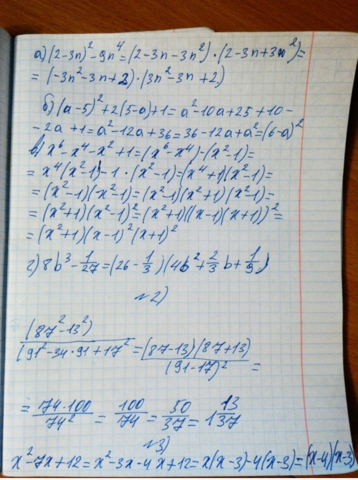 а) (2-3n)² - 9n⁴ = (2-3n-3n²)·(2-3n+3n²) =
= (-3n²-3n+2)·(3n²-3n+2)
б) (a-5)²+2(5-a)+1 = a²-10a+25+10-
-2a+1 = a²-12a+36 = 36-12a+a² = (6-a)²
в) x⁶-x⁴-x²+1 = (x⁶-x⁴)-(x²-1) =
= x⁴(x²-1)-1·(x²-1) = (x⁴+1)(x²-1) =
= (x²-1)(x²-1) = (x²-1)(x²+1)(x²-1) =
= (x²+1)(x²-1)² = (x²+1)((x-1)(x+1))² =
= (x²+1)(x-1)²(x+1)²
г) 8b³ - 1/27 = (2b - 1/3)(4b² + 2/3 b + 1/9)
№2)
(87²-13²)
(91²-34·91+17² = (87-13)(87+13)
(91-17)² =
= 174·100/74² = 100/74 = 50/37 = 1 13/37
№3)
x²-7x+12 = x²-3x-4x+12 = x(x-3)-4(x-3) = (x-4)(x-3)